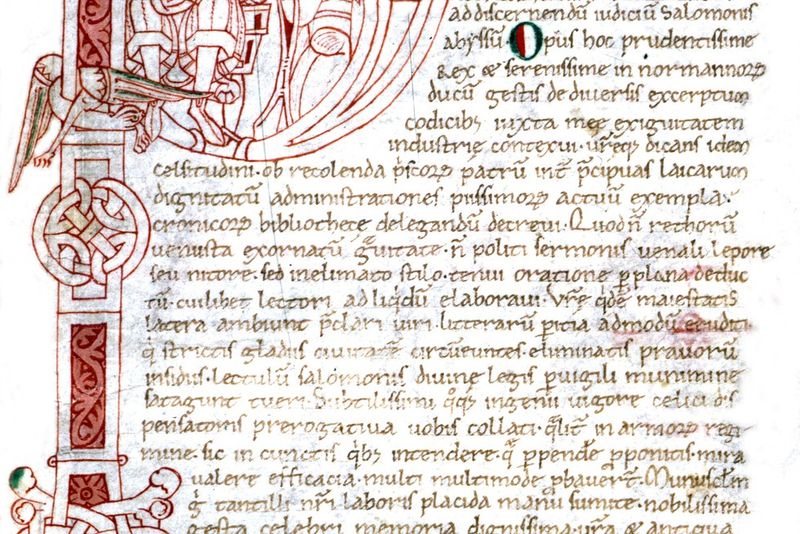 addiscernendū iudiciū salomonis
abyssū. Opus hoc prudentissime
& ex & serenissime in normannoꝝ
ducū gestis de diuersis excerptum
codicibꝫ iuxta mee exiguitatem
industrie contexui. ur̄eqꝫ dicans idem
celsitudini. ob recolenda p̄scoꝝ patrū int̄ p̄cipuas laicarum
dignitatū administrationes piissimoꝝ actuū exempla.
cronicoꝝ bibliothece delegandū decreui. Quod n̄ rethorū
uenusta exornatū g̃uitate. n̄ politi sermonis uenali lepore
seu nitore. sed inelimato stilo. tenui oratione ꝑ plana deduc
tū. cuilibet lectori ad liq̇dū elaboraui. Urē q̇dē maiestatis
latera ambiunt p̄clari uiri. litterarū ꝑitia admodū eruditi.
q̇ strictis gladiis ciuitatē circūeuntes. eliminatis prauorū
insidiis. lectulū salomonis diuine legis ꝑuigili munimine
satagunt tueri. Subtilissimi q̇qꝫ ingenii uigore celici dis
pensatoris prerogatiua uobis collati. qualit̄ in armoꝝ regi
mine. sic in cunctis q̇bꝫ intendere. q̄ ꝑpendē ꝓponitis. mira
ualere efficacia. multi multimode ꝓbauer̄t. Munusclm̄
g̊ tantilli nr̄i laboris placida manu sumite. nobilissima
gesta celebri memoria dignissima. ur̄a & antiqua